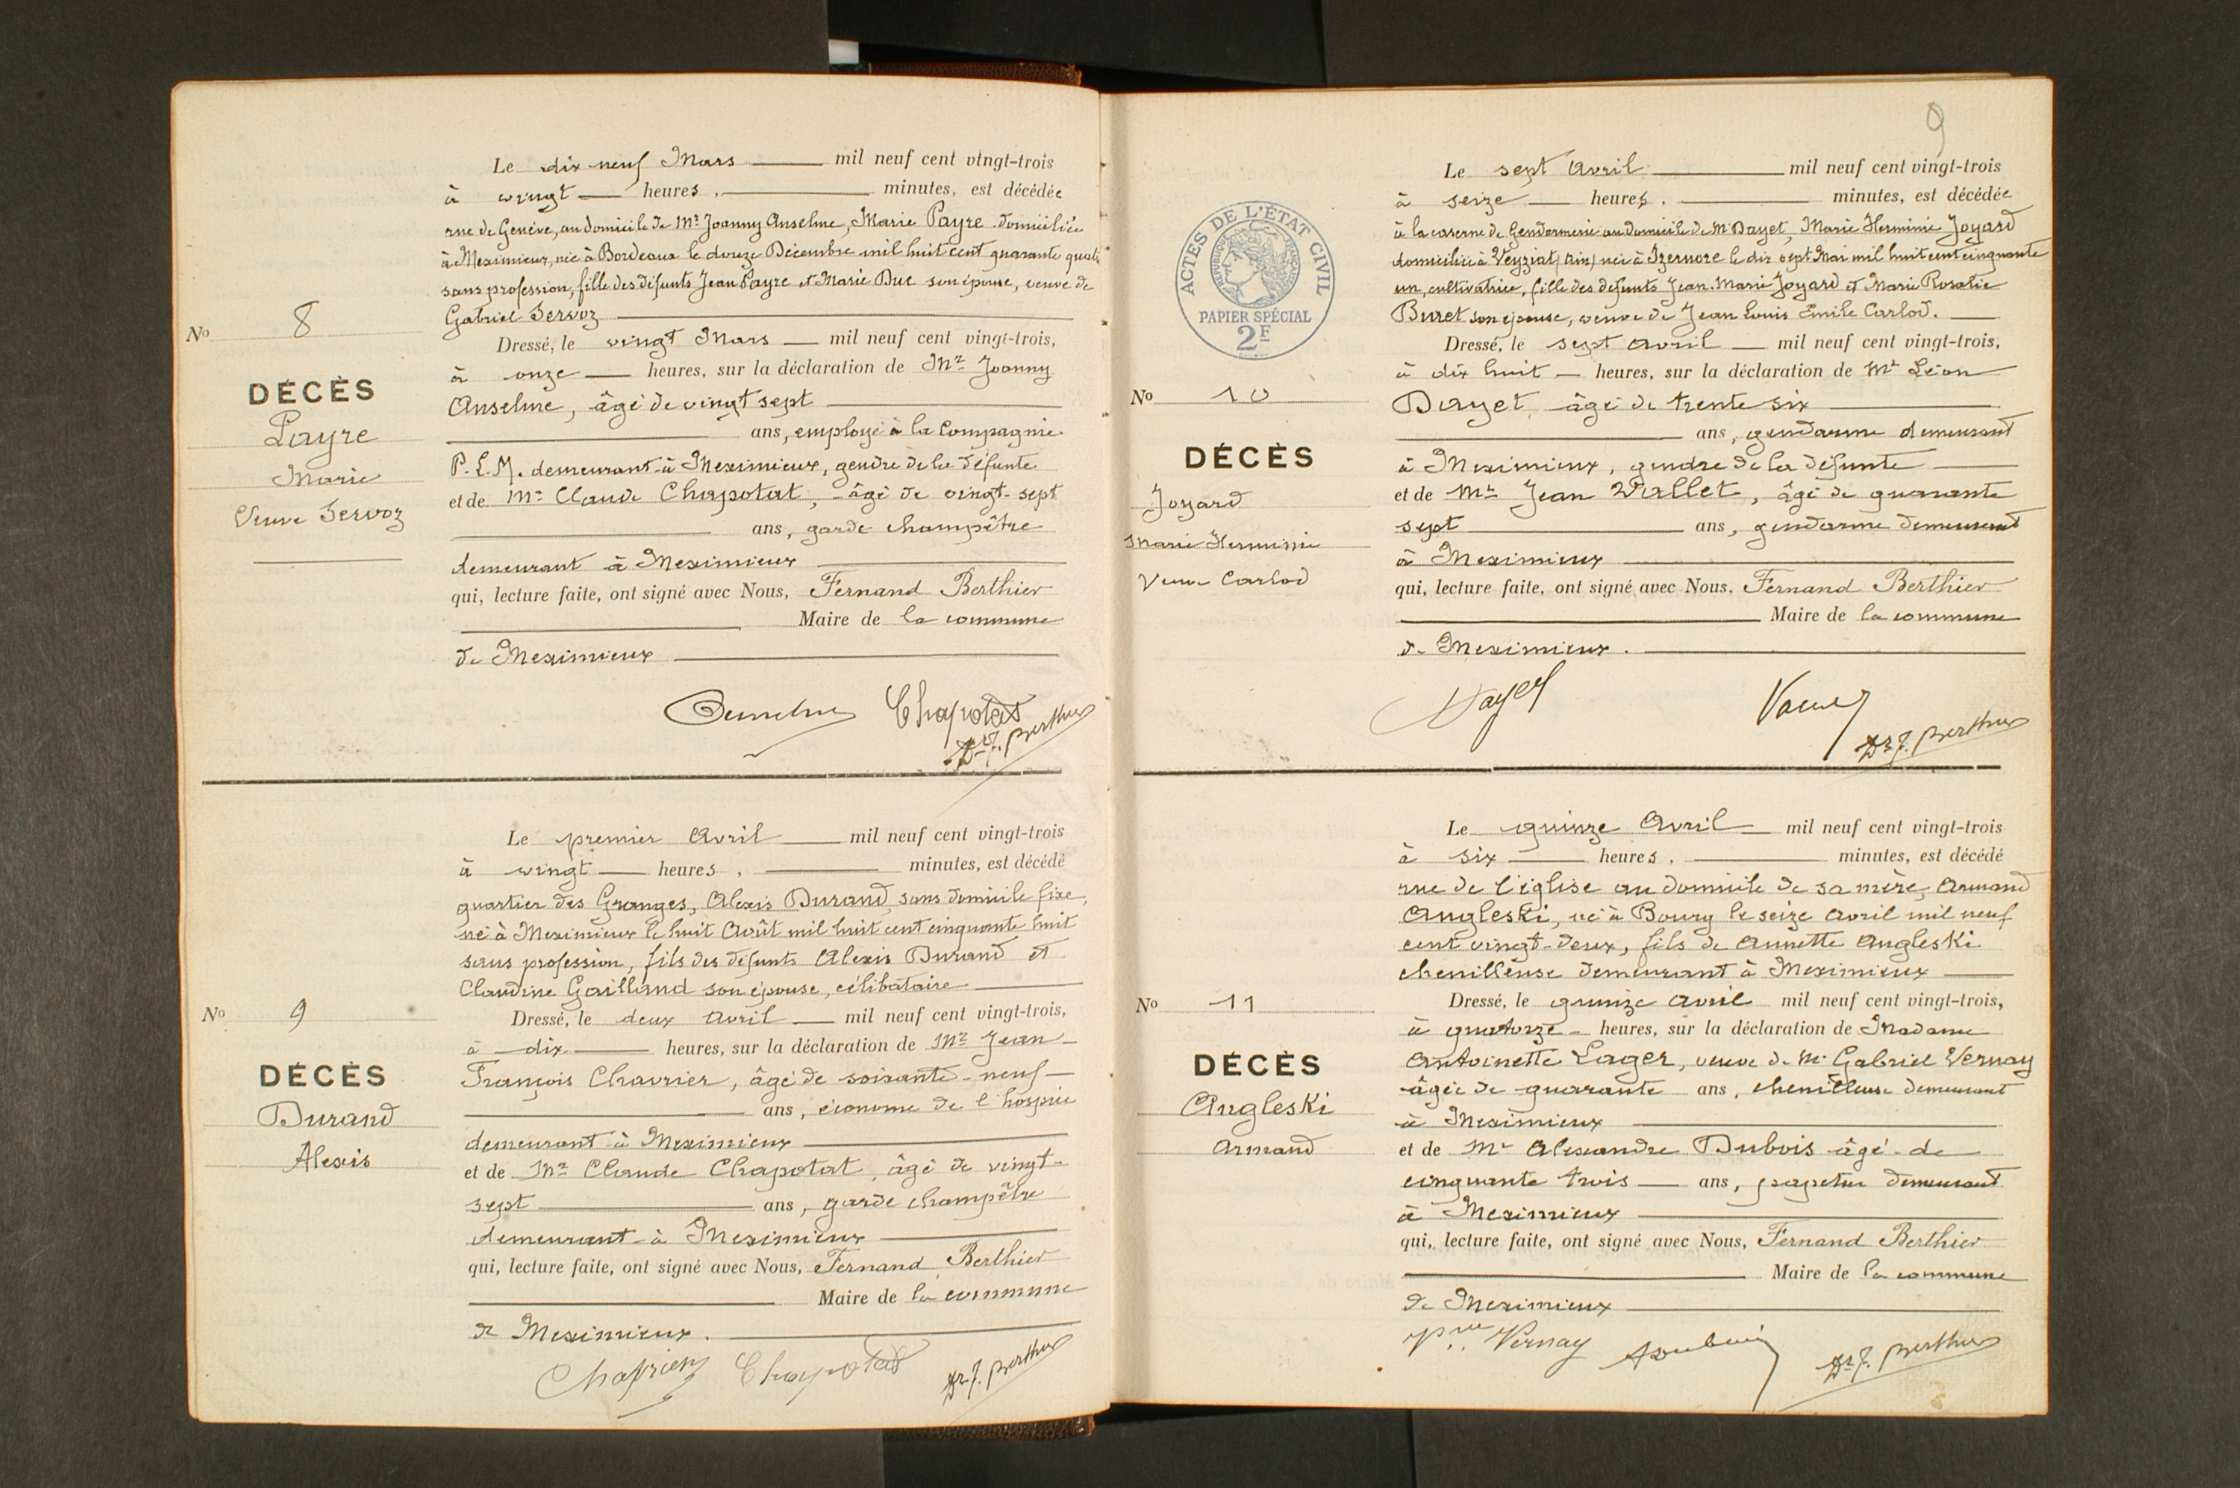 Le dix neuf Mars mil neuf cent vingt-trois
à vingt heures, minutes, est décédée
rue de Genève, au domicile de Mr Joanny Anselme, Marie Payre domiciliée
à Meximieux, née à Bordeaux le douze Décembre mil huit cent quarante quatre
sans profession, fille des défunts Jean Payre et Marie Duc son épouse, veuve de
Gabriel Servoz
No 8
Dressé, le vingt Mars mil neuf cent vingt-trois,
à onze heures, sur la déclaration de Mr Joanny
DÉCÈS
Anselme, âgé de vingt sept
Payre
ans, employé à la Compagnie
Marie
P.L.M. demeurant à Meximieux, gendre de la défunte
Veuve Servoz
et de Mr Claude Chapotat, âgé de vingt-sept
ans, garde champêtre
demeurant à Meximieux
qui, lecture faite, ont signé avec Nous, Fernand Berthier
Maire de la commune
de Meximieux
Anselme Chapotat
Dr F. Berthier
Le premier Avril mil neuf cent vingt-trois
à vingt heures, minutes, est décédé
quartier des Granges, Alexis Durand, sans domicile fixe,
né à Meximieux le huit Août mil huit cent cinquante huit
sans profession, fils des défunts Alexis Durand et
Claudine Gailland son épouse, célibataire
No 9
Dressé, le deux Avril mil neuf cent vingt-trois,
à dix heures, sur la déclaration de Mr Jean
DÉCÈS
François Chavrier, âgé de soixante-neuf
Durand
ans, économe de l'hospice
demeurant à Meximieux
Alexis
et de Mr Claude Chapotat, âgé de vingt-
sept ans, garde champêtre
demeurant à Meximieux
qui, lecture faite, ont signé avec Nous, Fernand Berthier
Maire de la commune
de Meximieux.
Chavrier Chapotat Dr F. Berthier
9
Le sept Avril mil neuf cent vingt-trois
à seize heures. minutes, est décédée
à la caserne de Gendarmerie au domicile de Mr Dayet, Marie Herminie Joyard
domiciliée à Veyziat (Ain) née à Izernore le dix sept Mai mil huit cent cinquante
un, cultivatrice, fille des défunts Jean-Marie Joyard et Marie Rosalie
Buret son épouse, veuve de Jean Louis Emile Carlod.
ACTES DE L'ÉTAT CIVIL
RÉPUBLIQUE FRANÇAISE
PAPIER SPÉCIAL
2F
Dressé, le sept avril mil neuf cent vingt-trois,
à dix huit heures, sur la déclaration de Mr Léon
No 10
Dayet, âgé de trente six
ans, gendarme demeurant
DÉCÈS
à Meximieux, gendre de la défunte
Joyard
et de Mr Jean Vallet, âgé de quarante
sept ans, gendarme demeurant
Marie Herminie
à Meximieux
Veuve Carlod
qui, lecture faite, ont signé avec Nous, Fernand Berthier
Maire de la commune
de Meximieux.
Dayet
Dr F. Berthier
Le quinze Avril mil neuf cent vingt-trois
à six heures, minutes, est décédé
rue de l'église au domicile de sa mère, Armand
Angleski, né à Bourg le seize avril mil neuf
cent vingt-deux, fils de Annette Angleski
chenilleuse demeurant à Meximieux
No 11
Dressé, le quinze avril mil neuf cent vingt-trois,
à quatorze heures, sur la déclaration de Madame
DÉCÈS
Antoinette Lager, veuve de Mr Gabriel Vernay
âgée de quarante ans, chenilleuse demeurant
Angleski
à Meximieux
Armand
et de Mr Alexandre Dubois âgé de
cinquante trois ans, papetier demeurant
à Meximieux
qui, lecture faite, ont signé avec Nous, Fernand Berthier
Maire de la commune
de Meximieux
Vve Vernay ADubois Dr F. Berthier